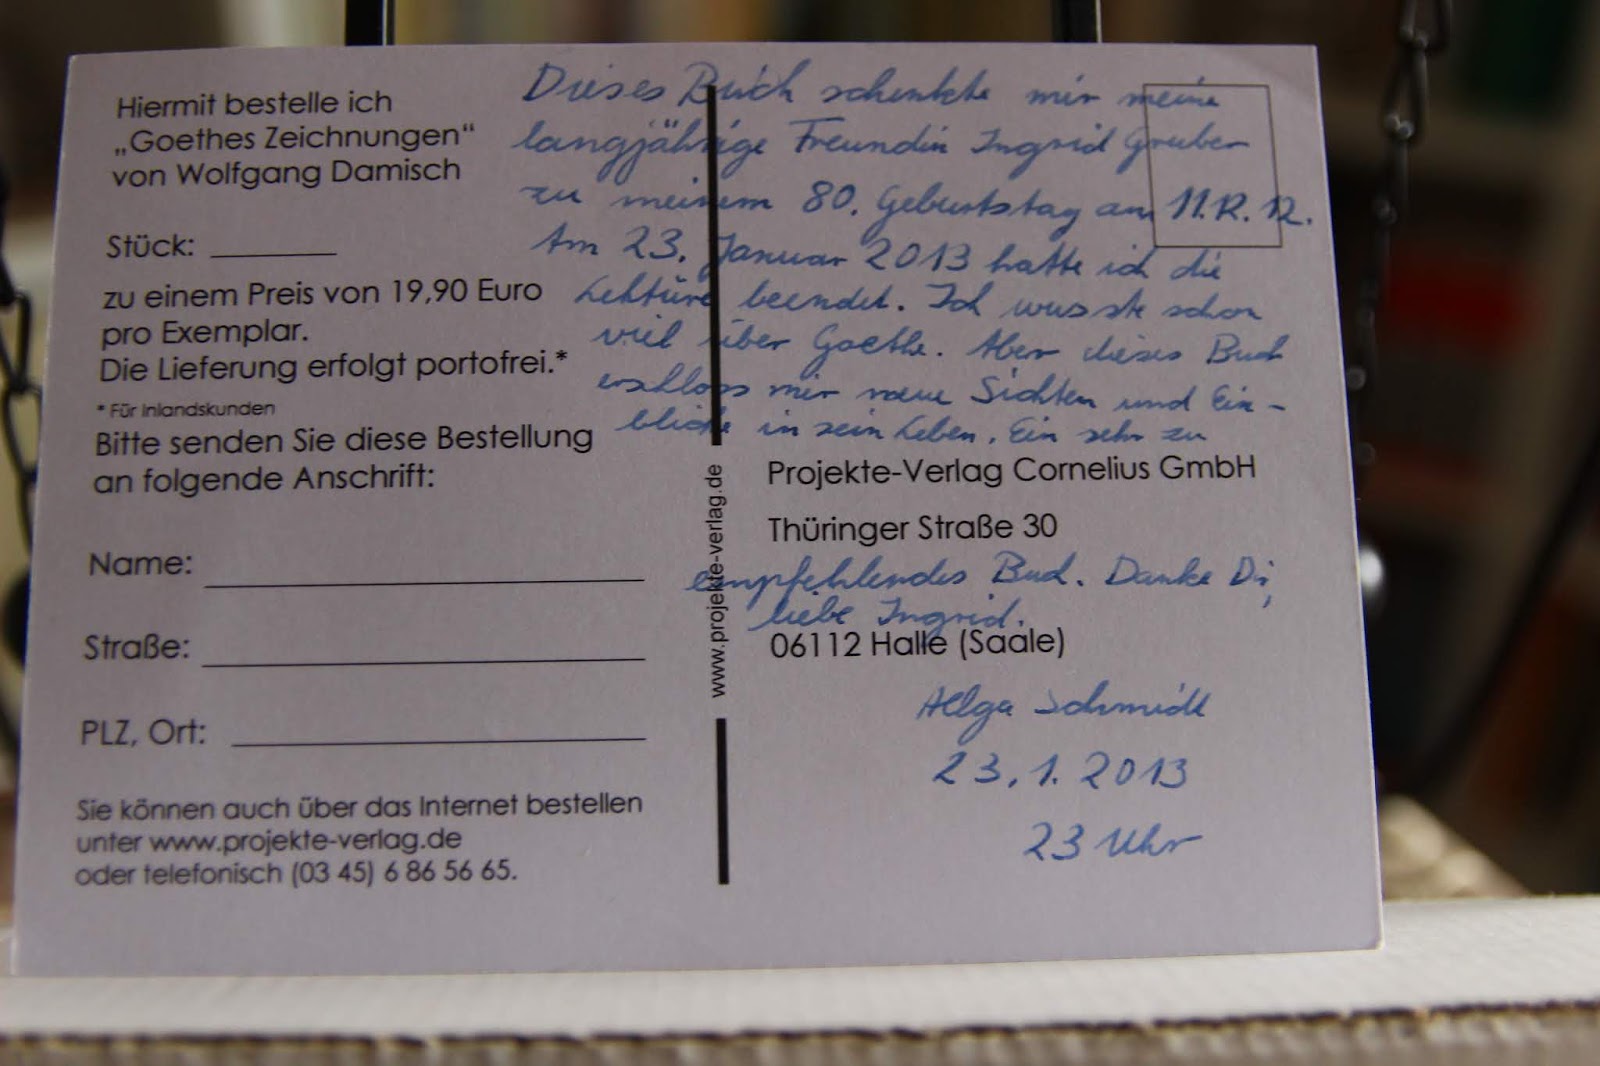 Hiermit bestelle ich
„Goethes Zeichnungen“
von Wolfgang Damisch
Stück:
zu einem Preis von 19,90 Euro
pro Exemplar.
Die Lieferung erfolgt portofrei.*
* Für Inlandskunden
Bitte senden Sie diese Bestellung
an folgende Anschrift:
Name:
Straße:
PLZ, Ort:
Sie können auch über das Internet bestellen
unter www.projekte-verlag.de
oder telefonisch (03 45) 6 86 56 65.
www.projekte-verlag.de
Dieses Buch schenkte mir meine
langjährige Freundin Ingrid Gruber
zu meinem 80. Geburtstag am 11.12.12.
Am 23. Januar 2013 hatte ich die
Lektüre beendet. Ich wusste schon
viel über Goethe. Aber dieses Buch
erschloss mir neue Sichten und Ein-
blicke in sein Leben. Ein sehr zu
Projekte-Verlag Cornelius GmbH
Thüringer Straße 30
empfehlendes Buch. Danke Dir,
liebe Ingrid.
06112 Halle (Saale)
Helga Schmidt
23.1.2013
23 Uhr